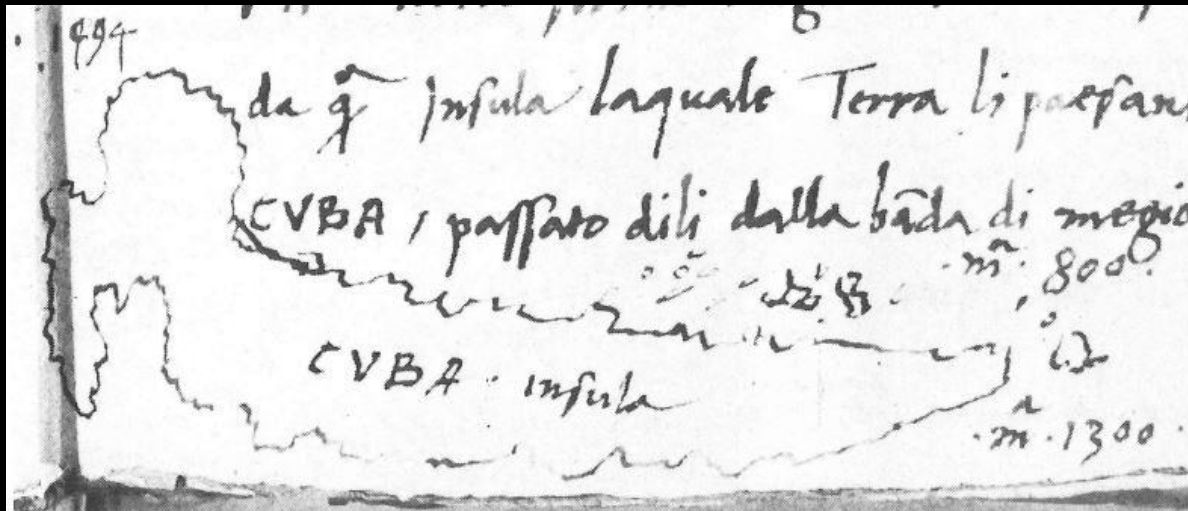 494
da q̃ Insula laquale Terra li paesan
CVBA / passato dili dalla bãda di megio
.m̃. 800.
CVBA. insula
.m̃. 1300.